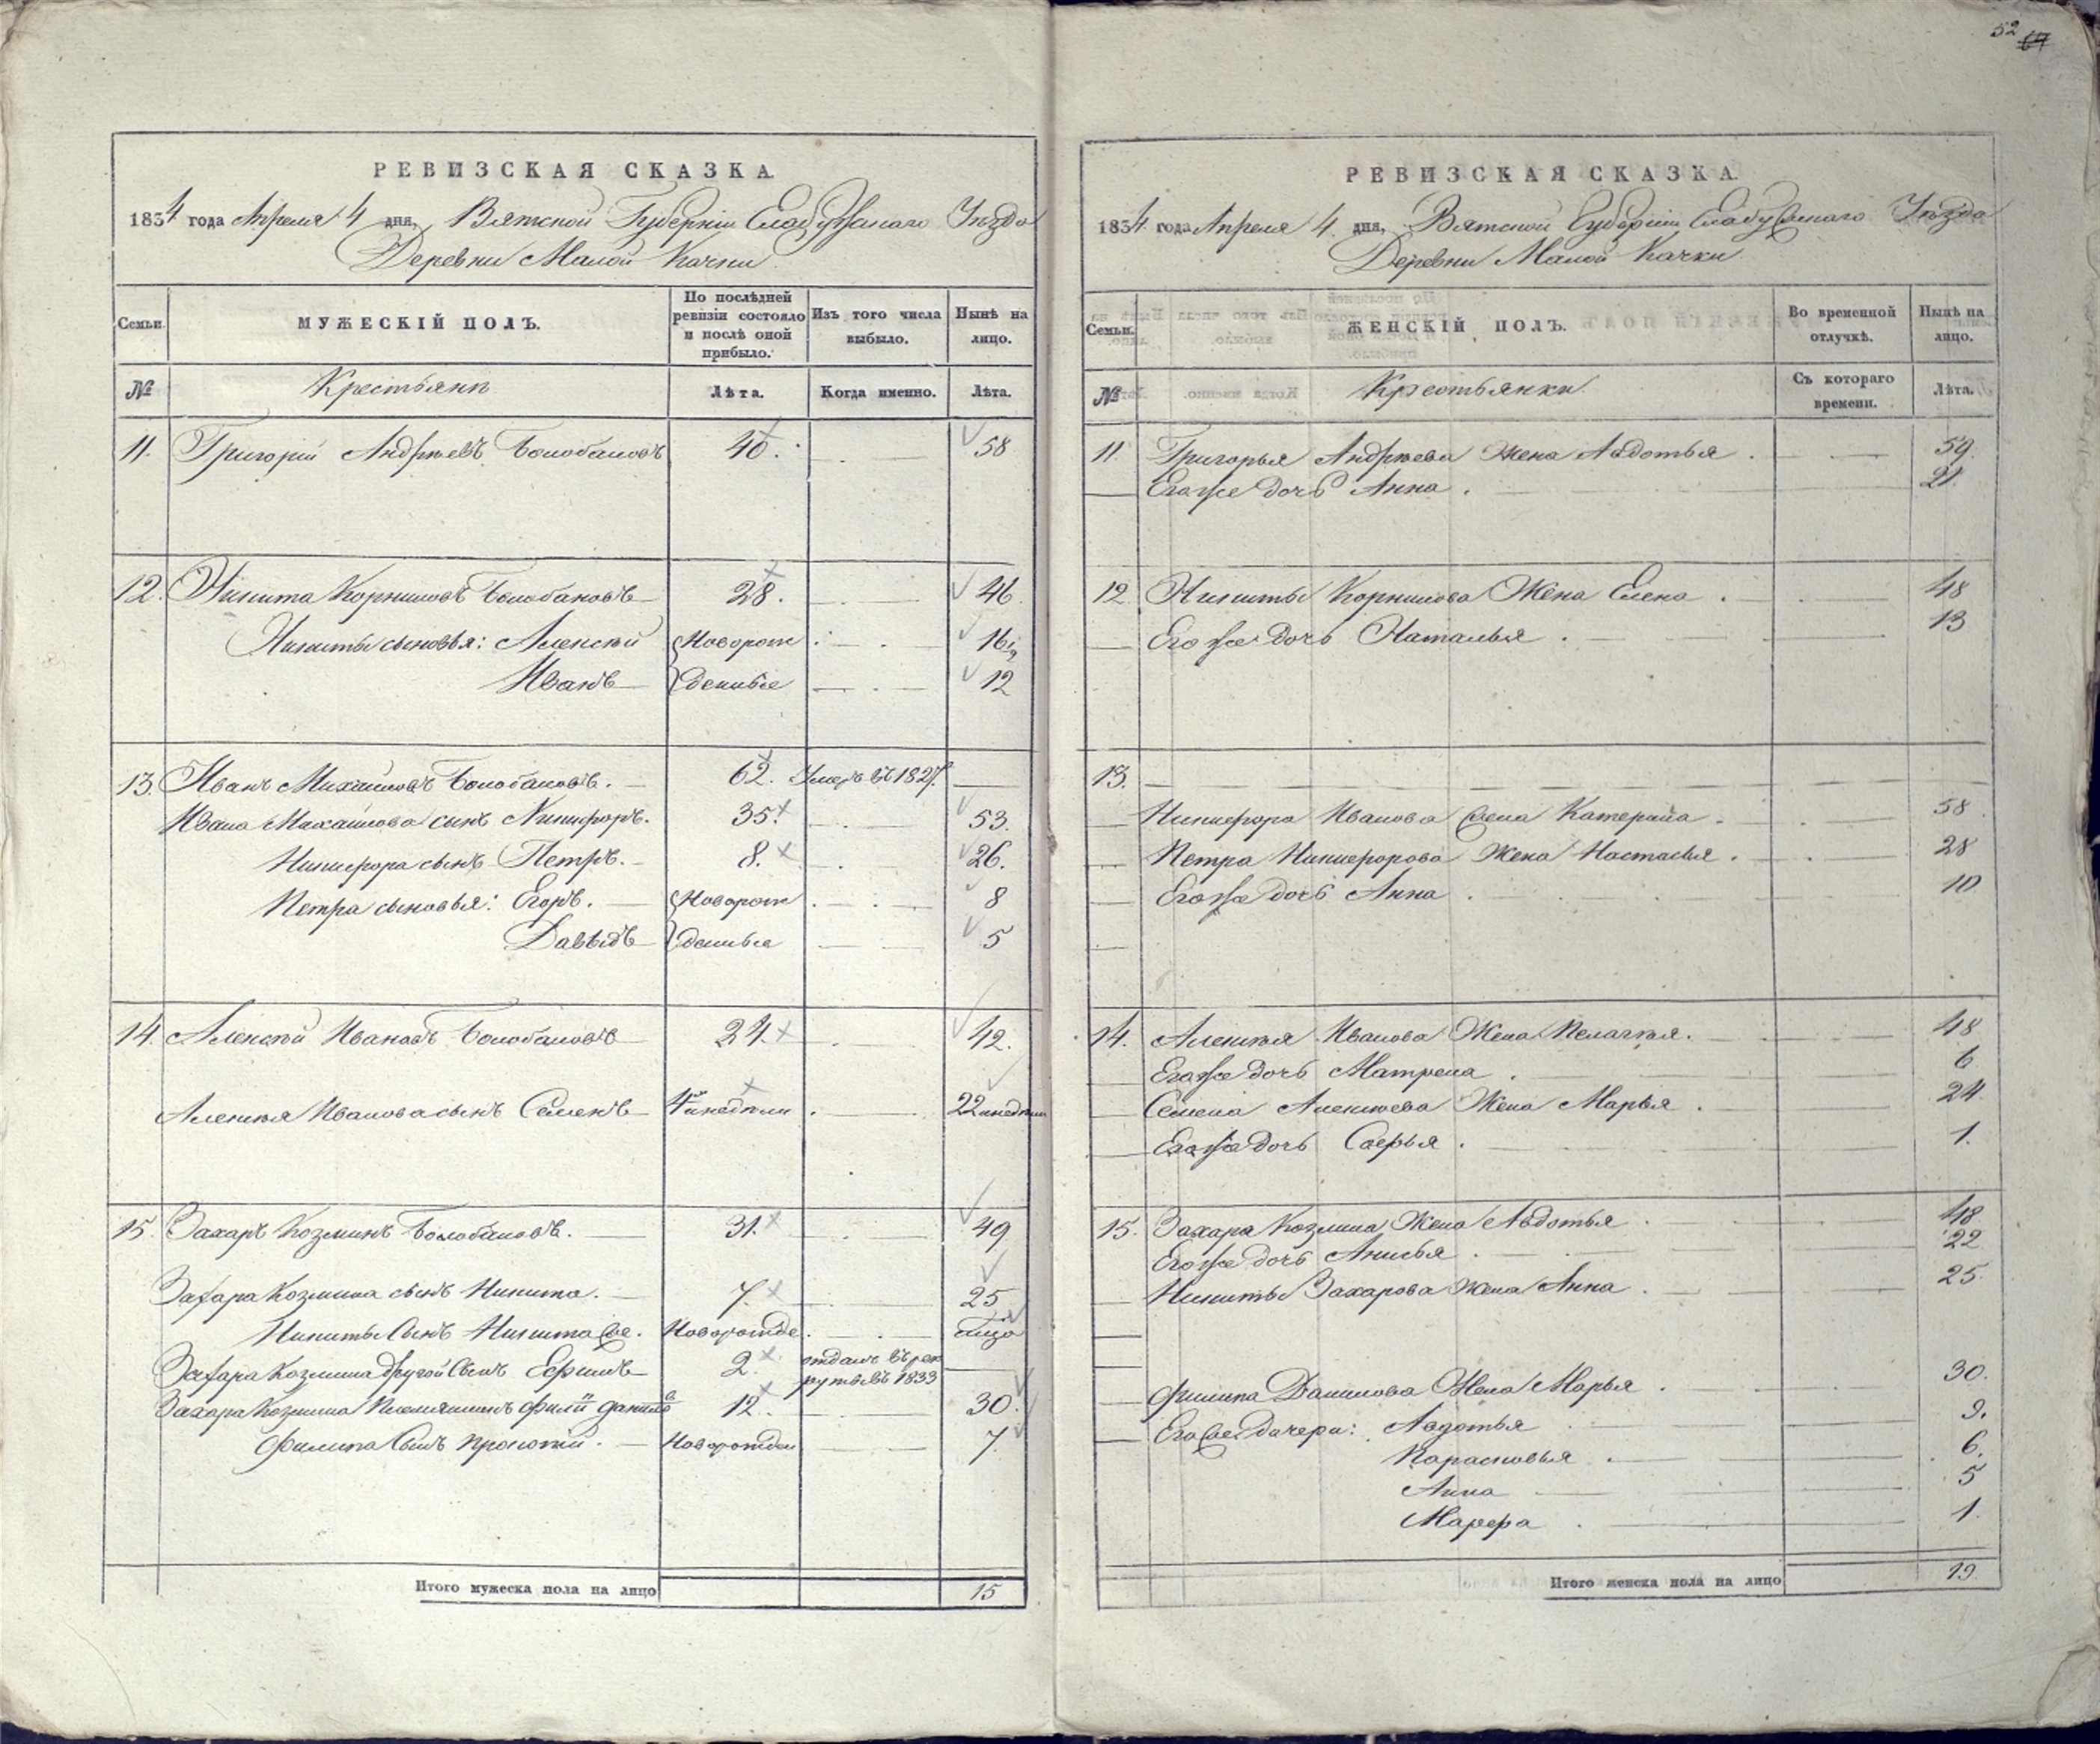 52 67
РЕВИЗСКАЯ СКАЗКА.
1834 года Апреля 4 дня, Вятской Губернiи Елабужскаго Уѣзда
Деревни Малой Качки
Семьи. МУЖЕСКІЙ ПОЛЪ. По послѣдней ревизіи состояло и послѣ оной прибыло. Изъ того числа выбыло. Нынѣ на лицо.
№ Крестьянъ Лѣта. Когда именно. Лѣта.
11. Григорій Андрѣевъ Болобановъ 40. 58
12. Никита Корниловъ Болобановъ 28. 46
Никиты сыновья: Алексѣй Новорож 16½
Иванъ денные 12
13. Иванъ Михайловъ Болобановъ. 62. Умеръ въ 1827.
Ивана Михайлова сынъ Никифоръ. 35. 53.
Никифора сынъ Петръ. 8. 26.
Петра сыновья: Егоръ. Новорож 8
Давыдъ денные 5
14. Алексѣй Ивановъ Болобановъ 24. 42.
Алексѣя Иванова сынъ Семенъ 4 недѣли 22 недѣли
15. Захаръ Козминъ Болобановъ. 31. 49
Захара Козмина сынъ Никита. 7. 25
Никиты Сынъ Никита же. Новорожде. лицо
Захара Козмина другой Сынъ Ефимъ 2. отданъ въ рекруты въ 1833
Захара Козмина Племянникъ Филип Данилов 12. 30.
Филипа Сынъ Прокопій. Новорожден 7.
Итого мужеска пола на лицо 15
РЕВИЗСКАЯ СКАЗКА
1834 года Апреля 4 дня, Вятской Губернiи Елабужскаго Уѣзда
Деревни Малой Качки
Семьи. ЖЕНСКІЙ ПОЛЪ. Во временной отлучкѣ. Нынѣ на лицо.
№ Крестьянки Съ котораго времени. Лѣта.
11. Григорья Андрѣева жена Авдотья. 59.
Егоже дочь Анна. 21.
12 Никиты Корнилова Жена Елена. 48
Егоже дочь Наталья. 13
13.
Никифора Иванова Жена Катерина. 58
Петра Никифорова Жена Настасья. 28
Егоже дочь Анна. 10
14. Алексѣя Иванова Жена Пелагѣя. 48
Егоже дочь Матрена. 6
Семена Алексѣева Жена Марья. 24.
Егоже дочь Софья. 1.
15. Захара Козмина Жена Авдотья. 48
Егоже дочь Анисья. 22
Никиты Захарова жена Анна. 25.
Филипа Данилова Жена Марья. 30.
Егоже дочери: Авдотья 9.
Парасковья. 6.
Анна 5
Марфа. 1.
Итого женска пола на лицо 19